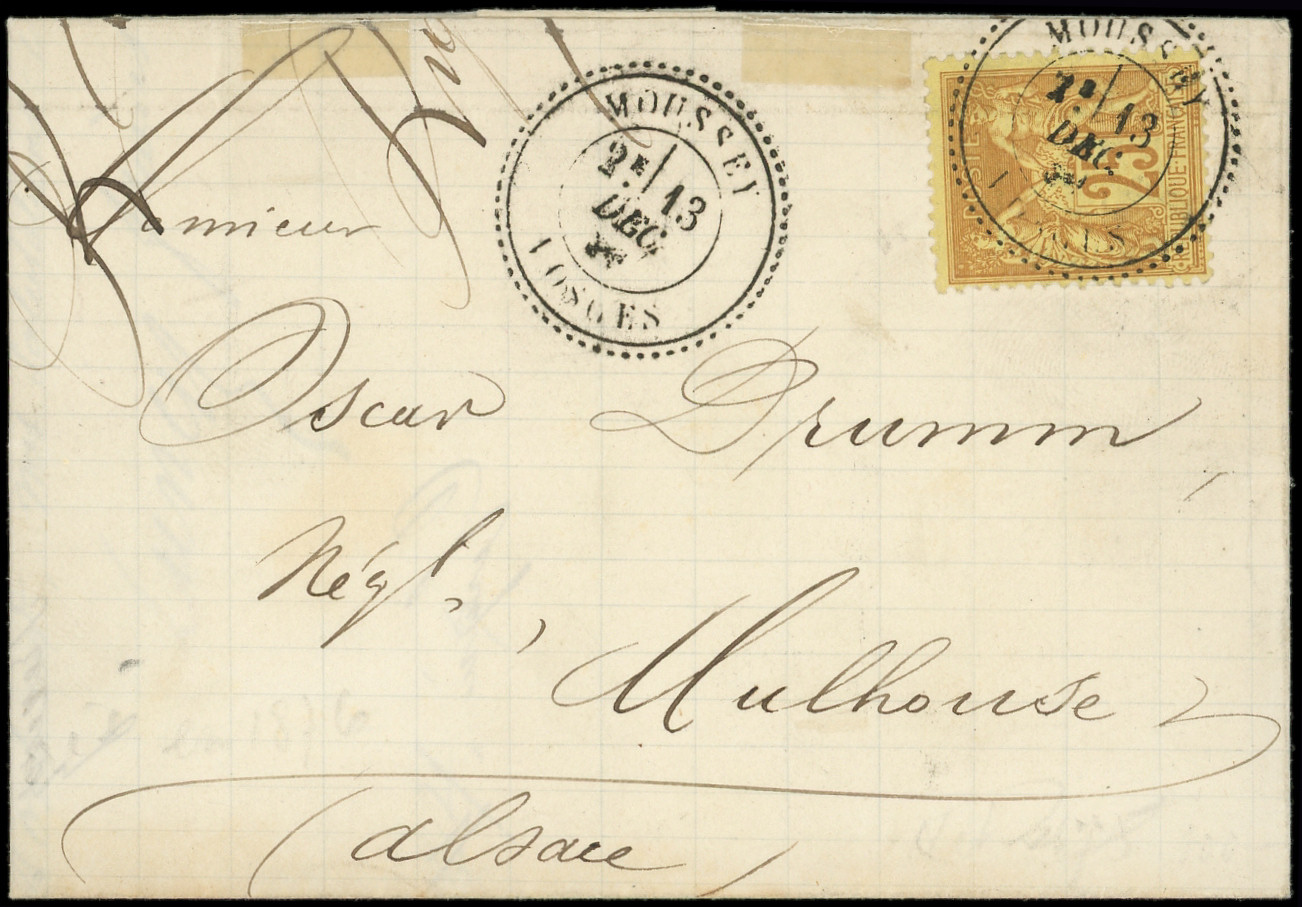 MOUSSEY
2E / 13
DEC.
VOSGES
MOUSSEY
13
DEC.
VOSGES
POSTES
25
REPUBLIQUE-FRANÇAISE
Monsieur
Oscar Drumm
Négt,
Mulhouse
(alsace)